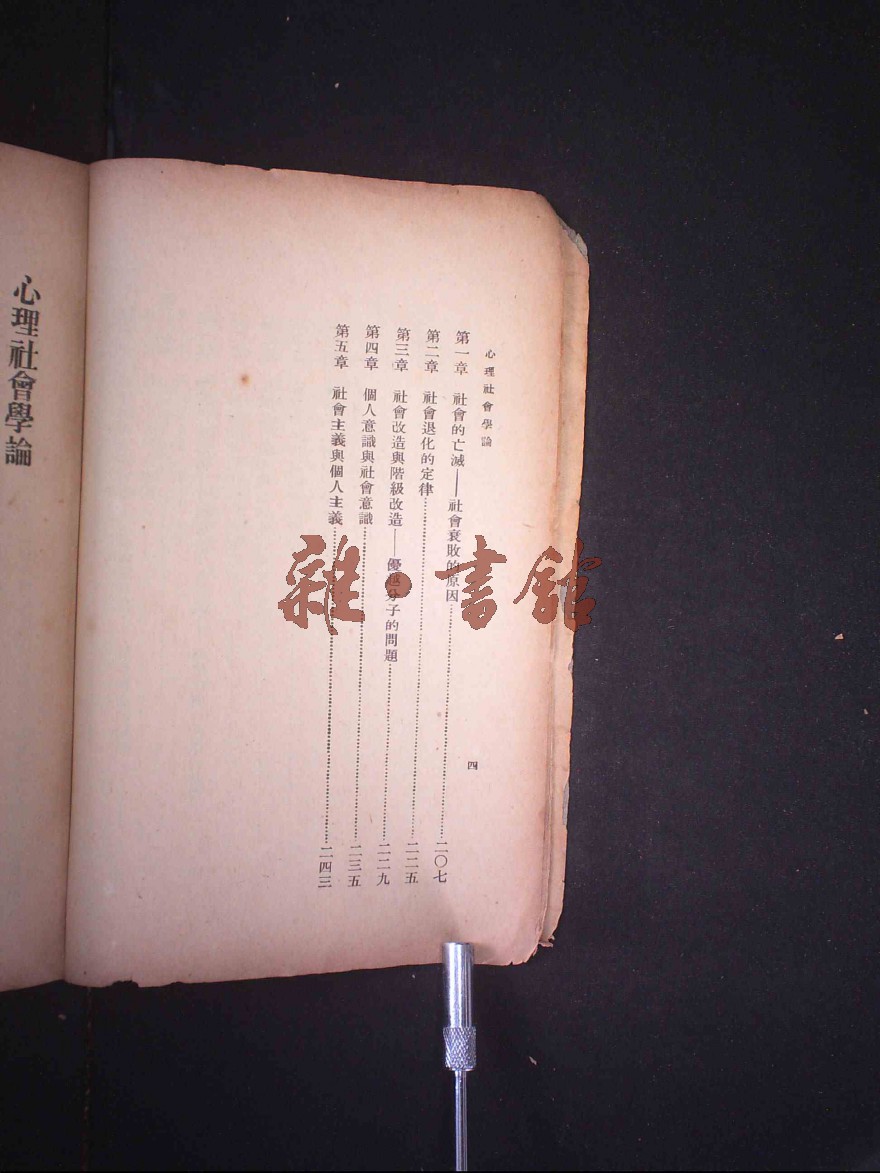 心理社會學論
第一章　社會的亡滅——社會衰敗的原因……二〇七
第二章　社會退化的定律……二二五
第三章　社會改造與階級改造——優越分子的問題……二二九
第四章　個人意識與社會意識……二三五
第五章　社會主義與個人主義……二四三
四
心理社會學論
雜·書館